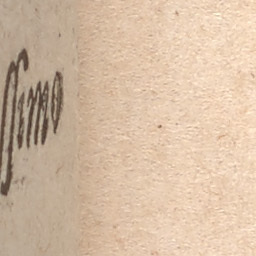 ſſimo